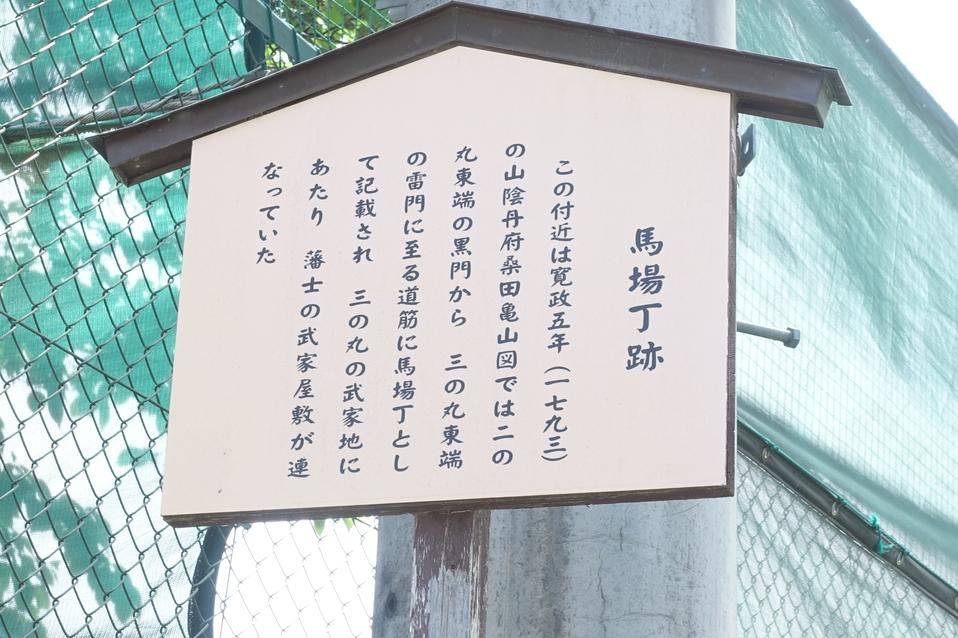 馬場丁跡
この付近は寛政五年(一七九三)
の山陰丹府桑田亀山図では二の
丸東端の黒門から 三の丸東端
の雷門に至る道筋に馬場丁とし
て記載され 三の丸の武家地に
あたり 藩士の武家屋敷が連
なっていた